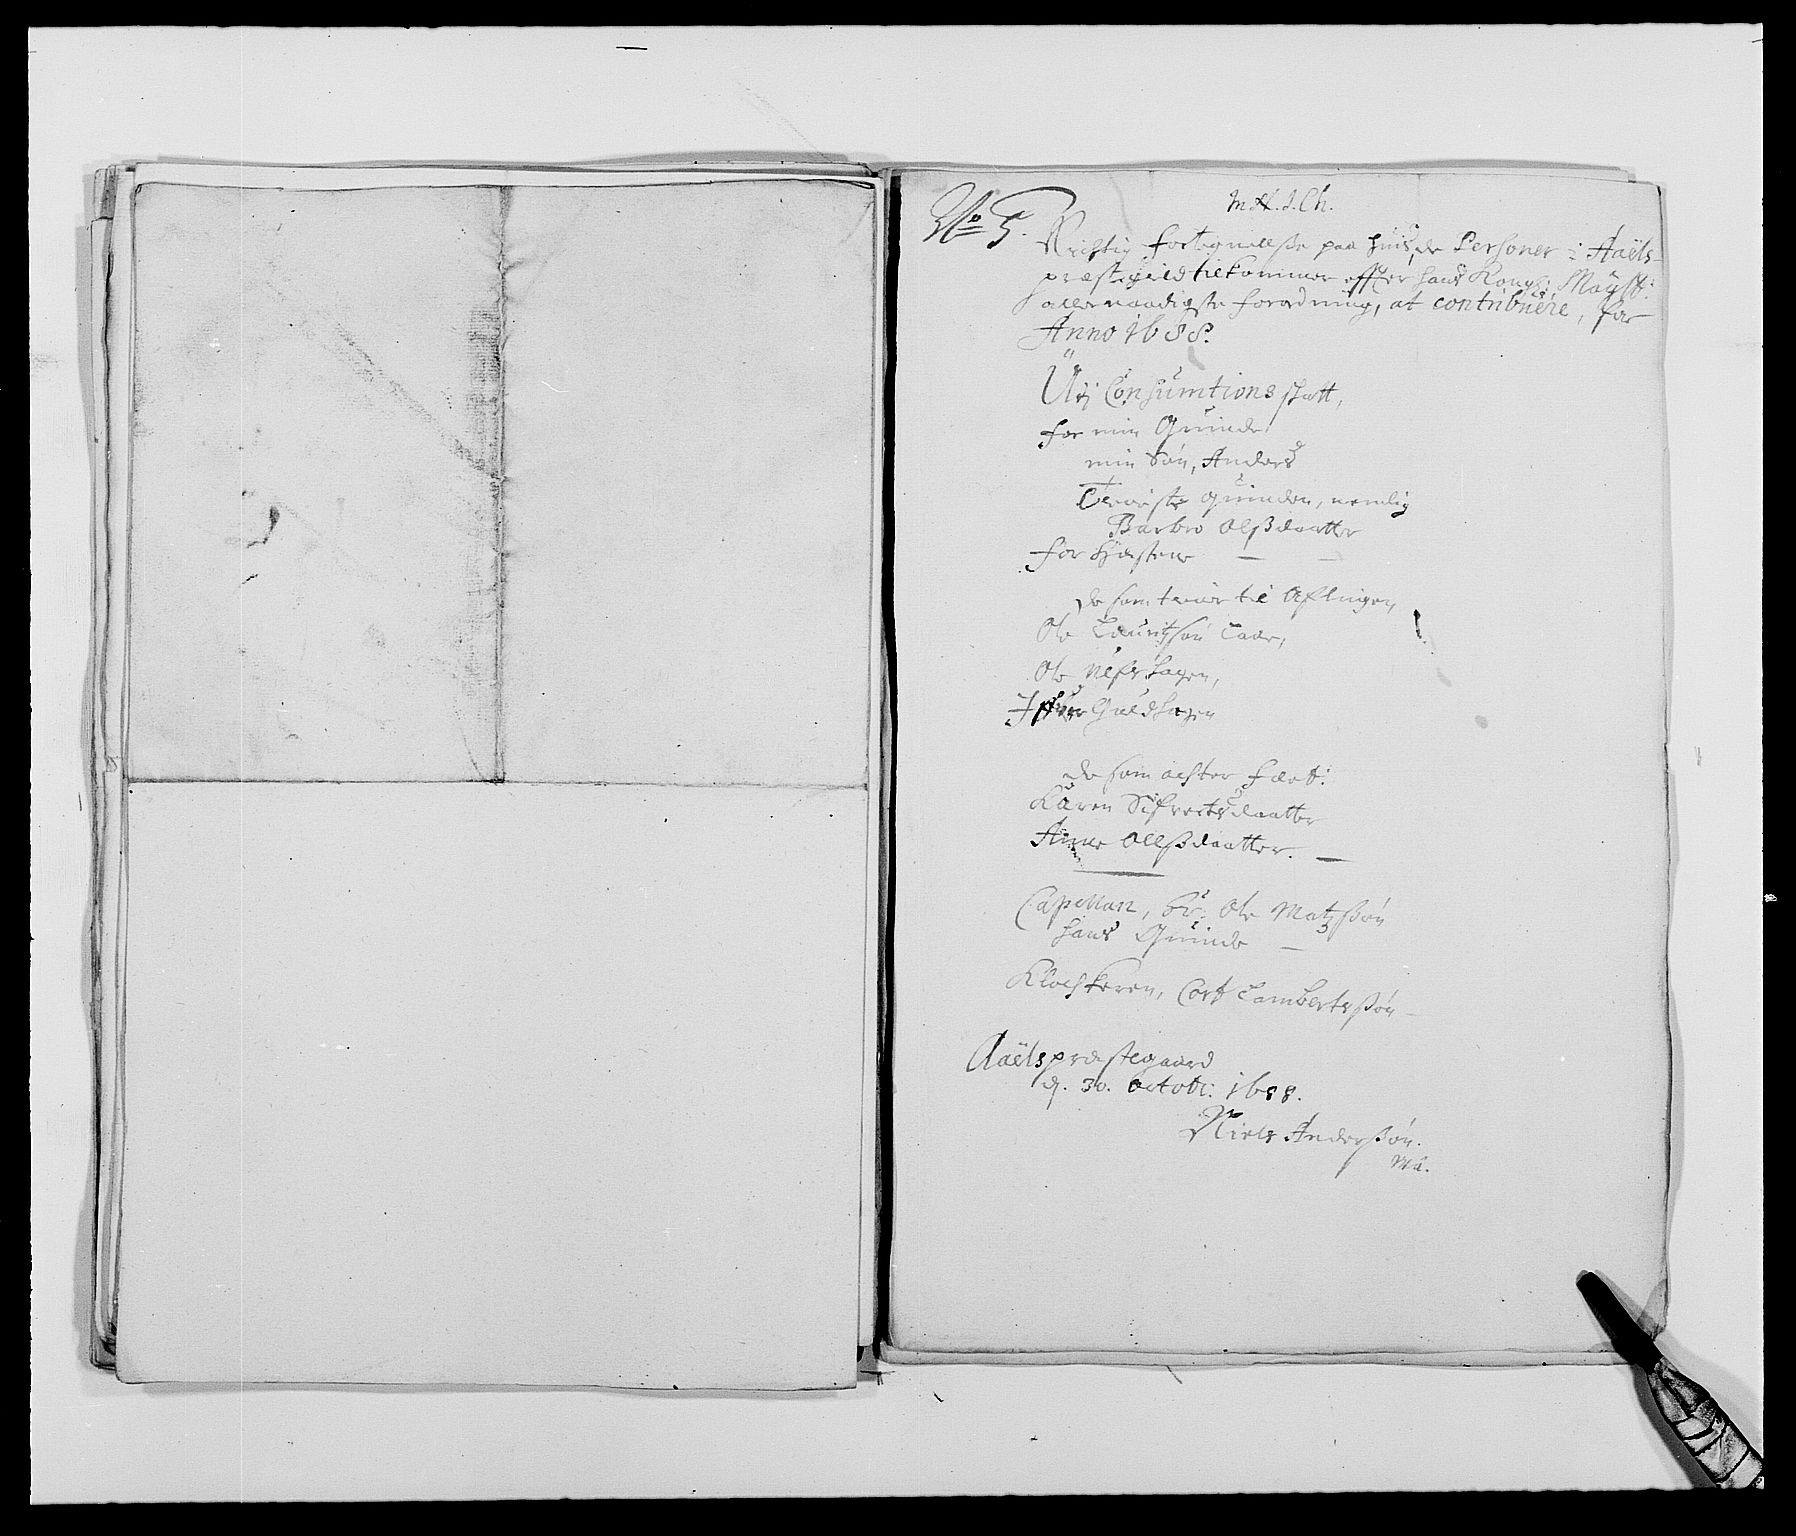 M H. J. Ch.
No 5.
Rigtig fortegnelße paa huis de Personer i Aaëls
præstegield tilkommer effter hans Kongl: Maÿtt:
allernaadigste forordning, at contribuere, for
Anno 1688.
Udj Consumtions skatt,
for min Quinde
min Søn, Anders
Tieniste quinden, nemlig
Barbro Olßdaatter
for Hæstene —
de som tiener til Aflingen,
Ole Lauritzsøn
Ole
Iffver Guldhagen
de som achter fæet:
Karen Sifvertsdaatter
Anne Ollßdaatter. —
Capellan, Hr. Ole Matzßøn
hans Quinde —
Klockeren, Cort Lambertsßøn —
Aaëlspræstegaard
d. 30. Octob: 1688.
Niels Anderßøn.